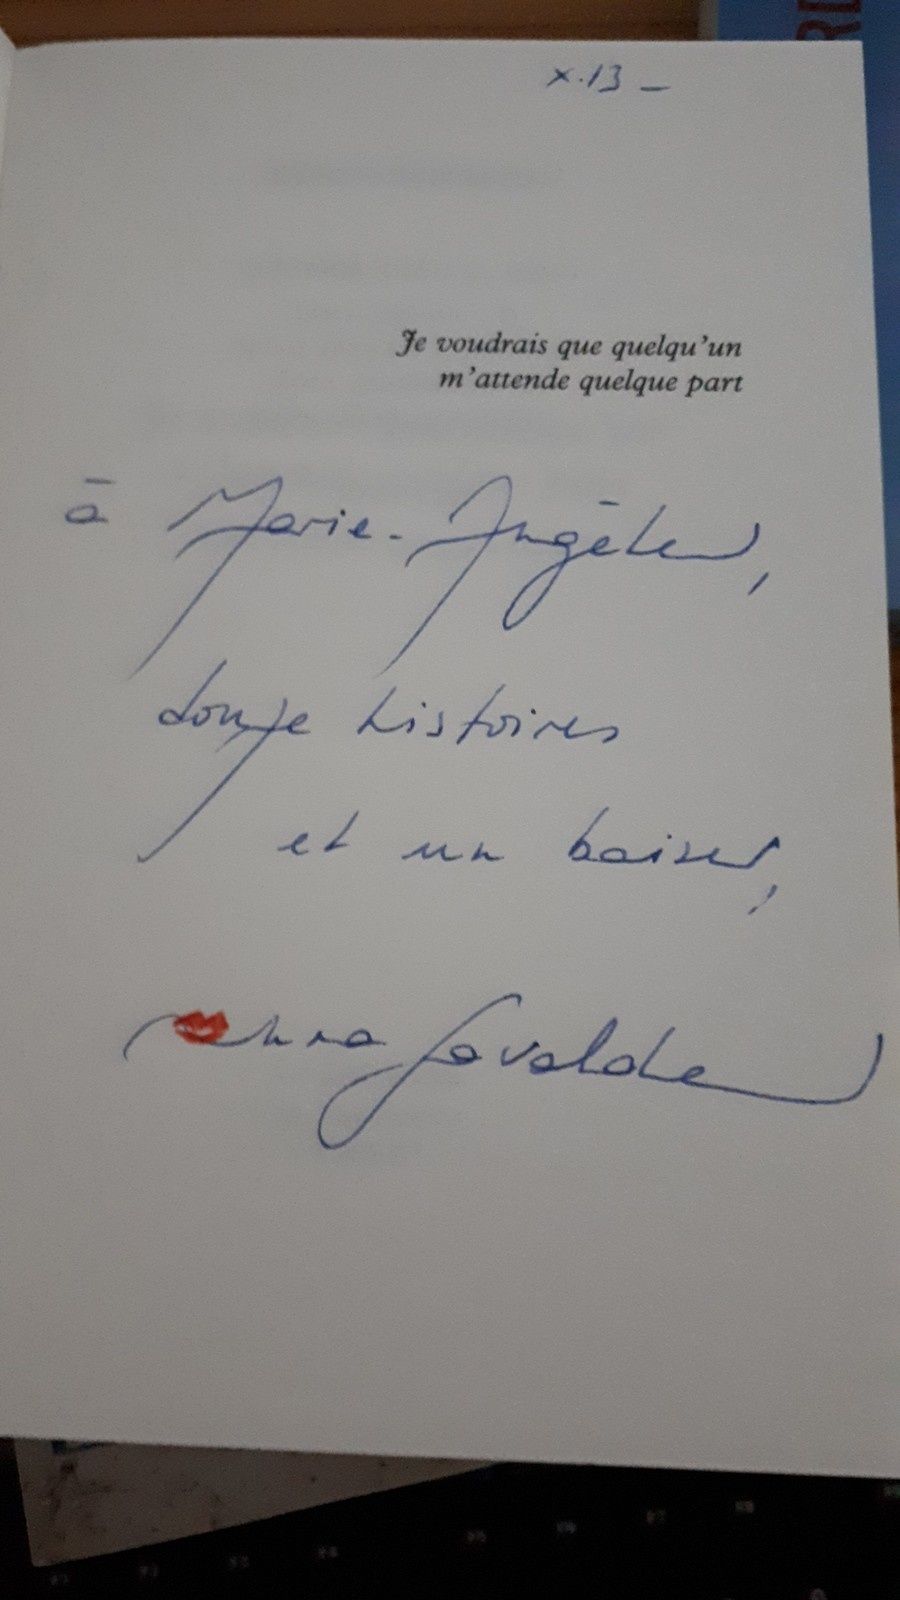 x.13 -
Je voudrais que quelqu'un
m'attende quelque part
à Marie-Angèle,
douze histoires
et un baiser,
Anna Gavalda